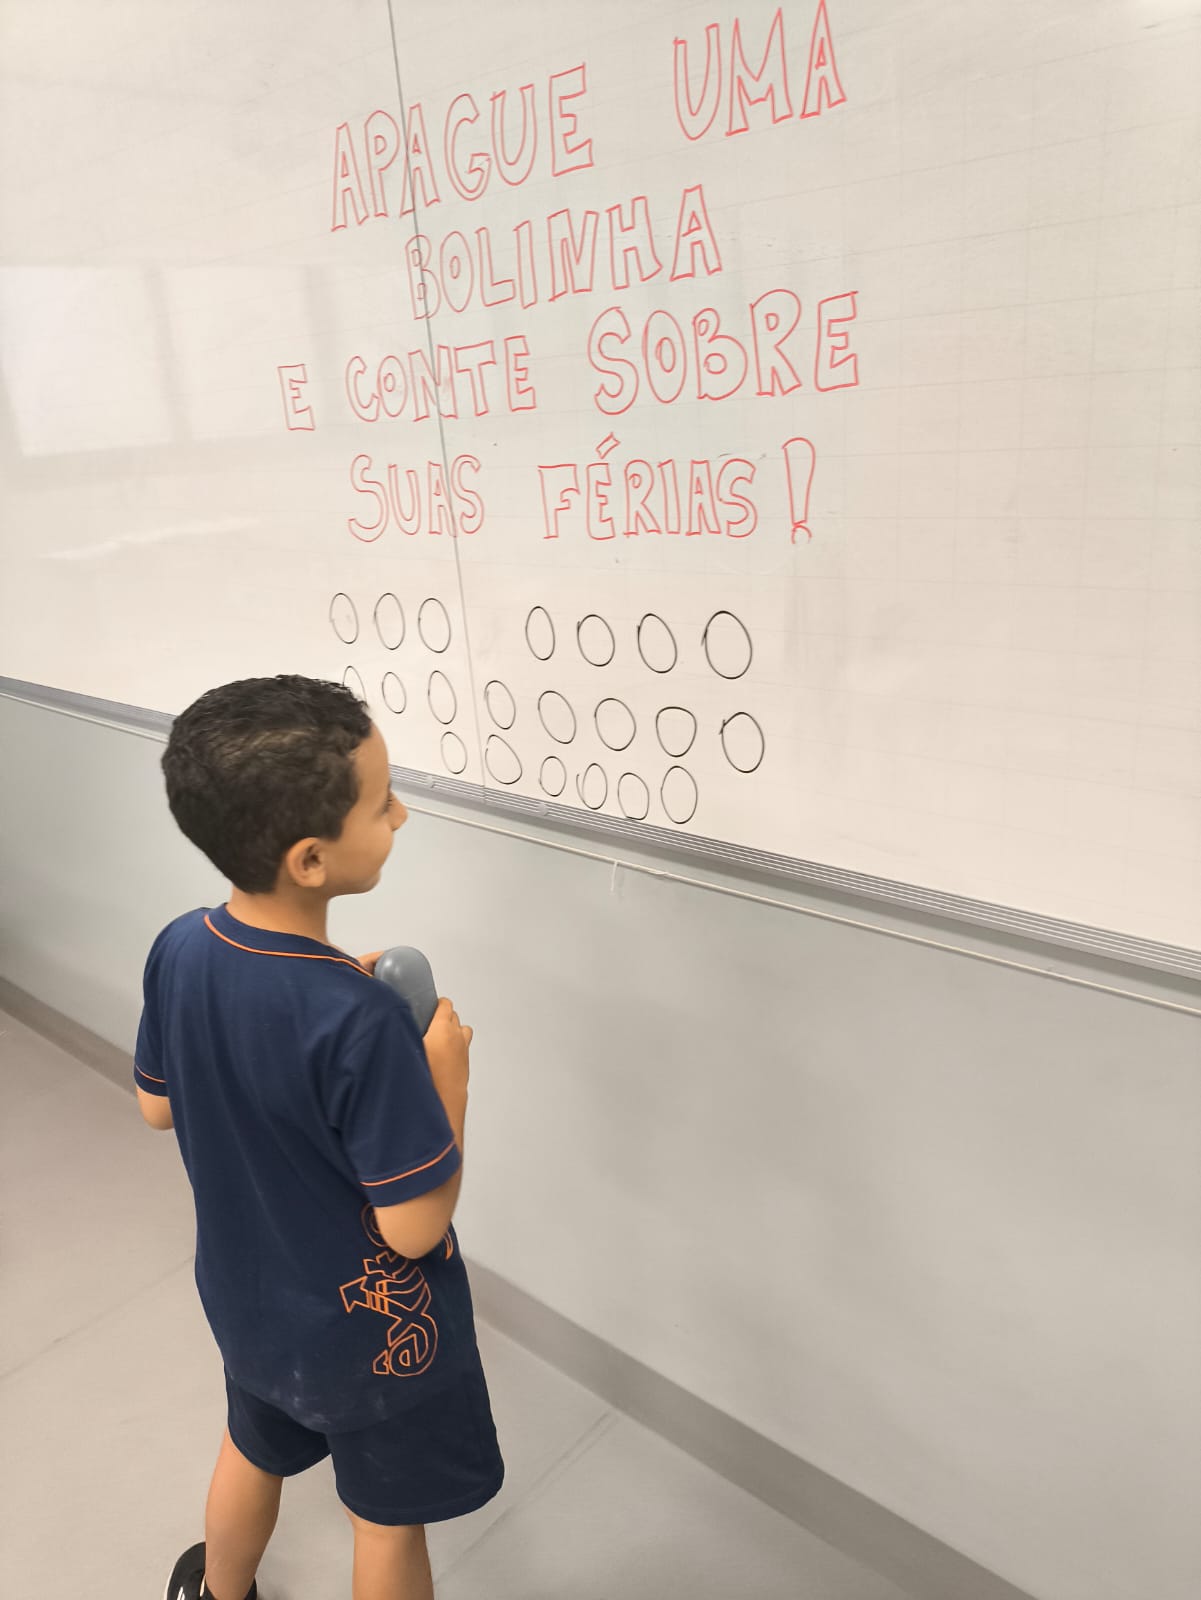 APAGUE UMA
BOLINHA
E CONTE SOBRE
SUAS FÉRIAS!